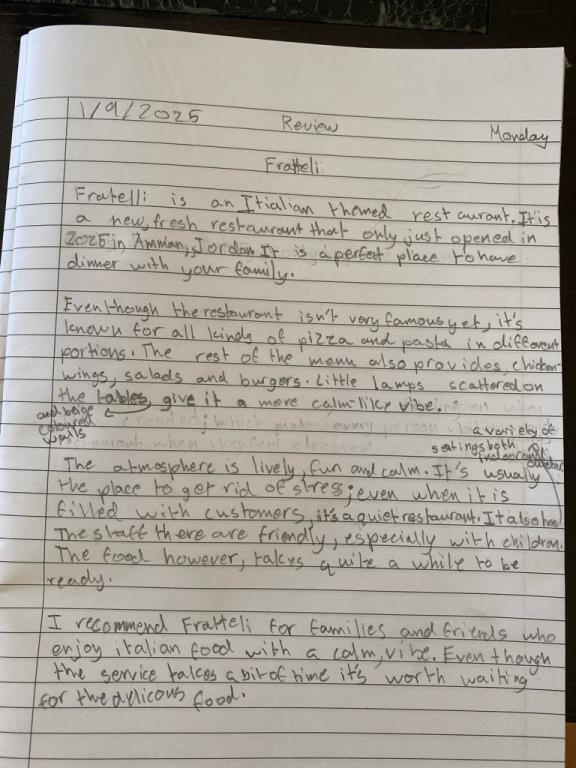 1/9/2025 Review Monday
Fratteli
Fratelli is an Itialian themed restaurant. It is
a new, fresh restaurant that only just opened in
2025 in Amman, Jordan It is a perfect place to have
dinner with your family.
Eventhough the restaurant isn't very famous yet, it's
known for all kinds of pizza and pasta in different
portions. The rest of the menu also provides, chicken
wings, salads and burgers. Little lamps scattered on
the tables, give it a more calm-like vibe.
and beige
coloured
walls
a variety of
seatings both
indoor and
outdoor.
The atmosphere is lively, fun and calm. It's usually
the place to get rid of stress; even when it is
filled with customers, it's a quiet restaurant. It also has
The staff there are friendly, especially with children.
The food however, takes quite a while to be
ready.
I recommend Fratteli for families and friends who
enjoy italian food with a calm, vibe. Even though
the service takes a bit of time it's worth waiting
for the delicous food.